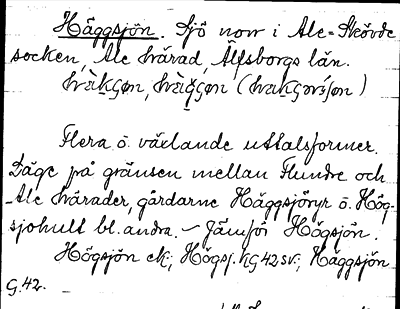 Häggsjön. Sjö norr i Ale-Skövde
socken, Ale härad, Älfsborgs län.
Flera o. växlande uttalsformer.
Läge på gränsen mellan Flundre och
Ale härader, gårdarne Häggsjöryr o. Hög-
sjohult bl. andra. – Jämför Högsjön.
Högsjön ek; Högsj. KG42SV.; Häggsjön
G.42.